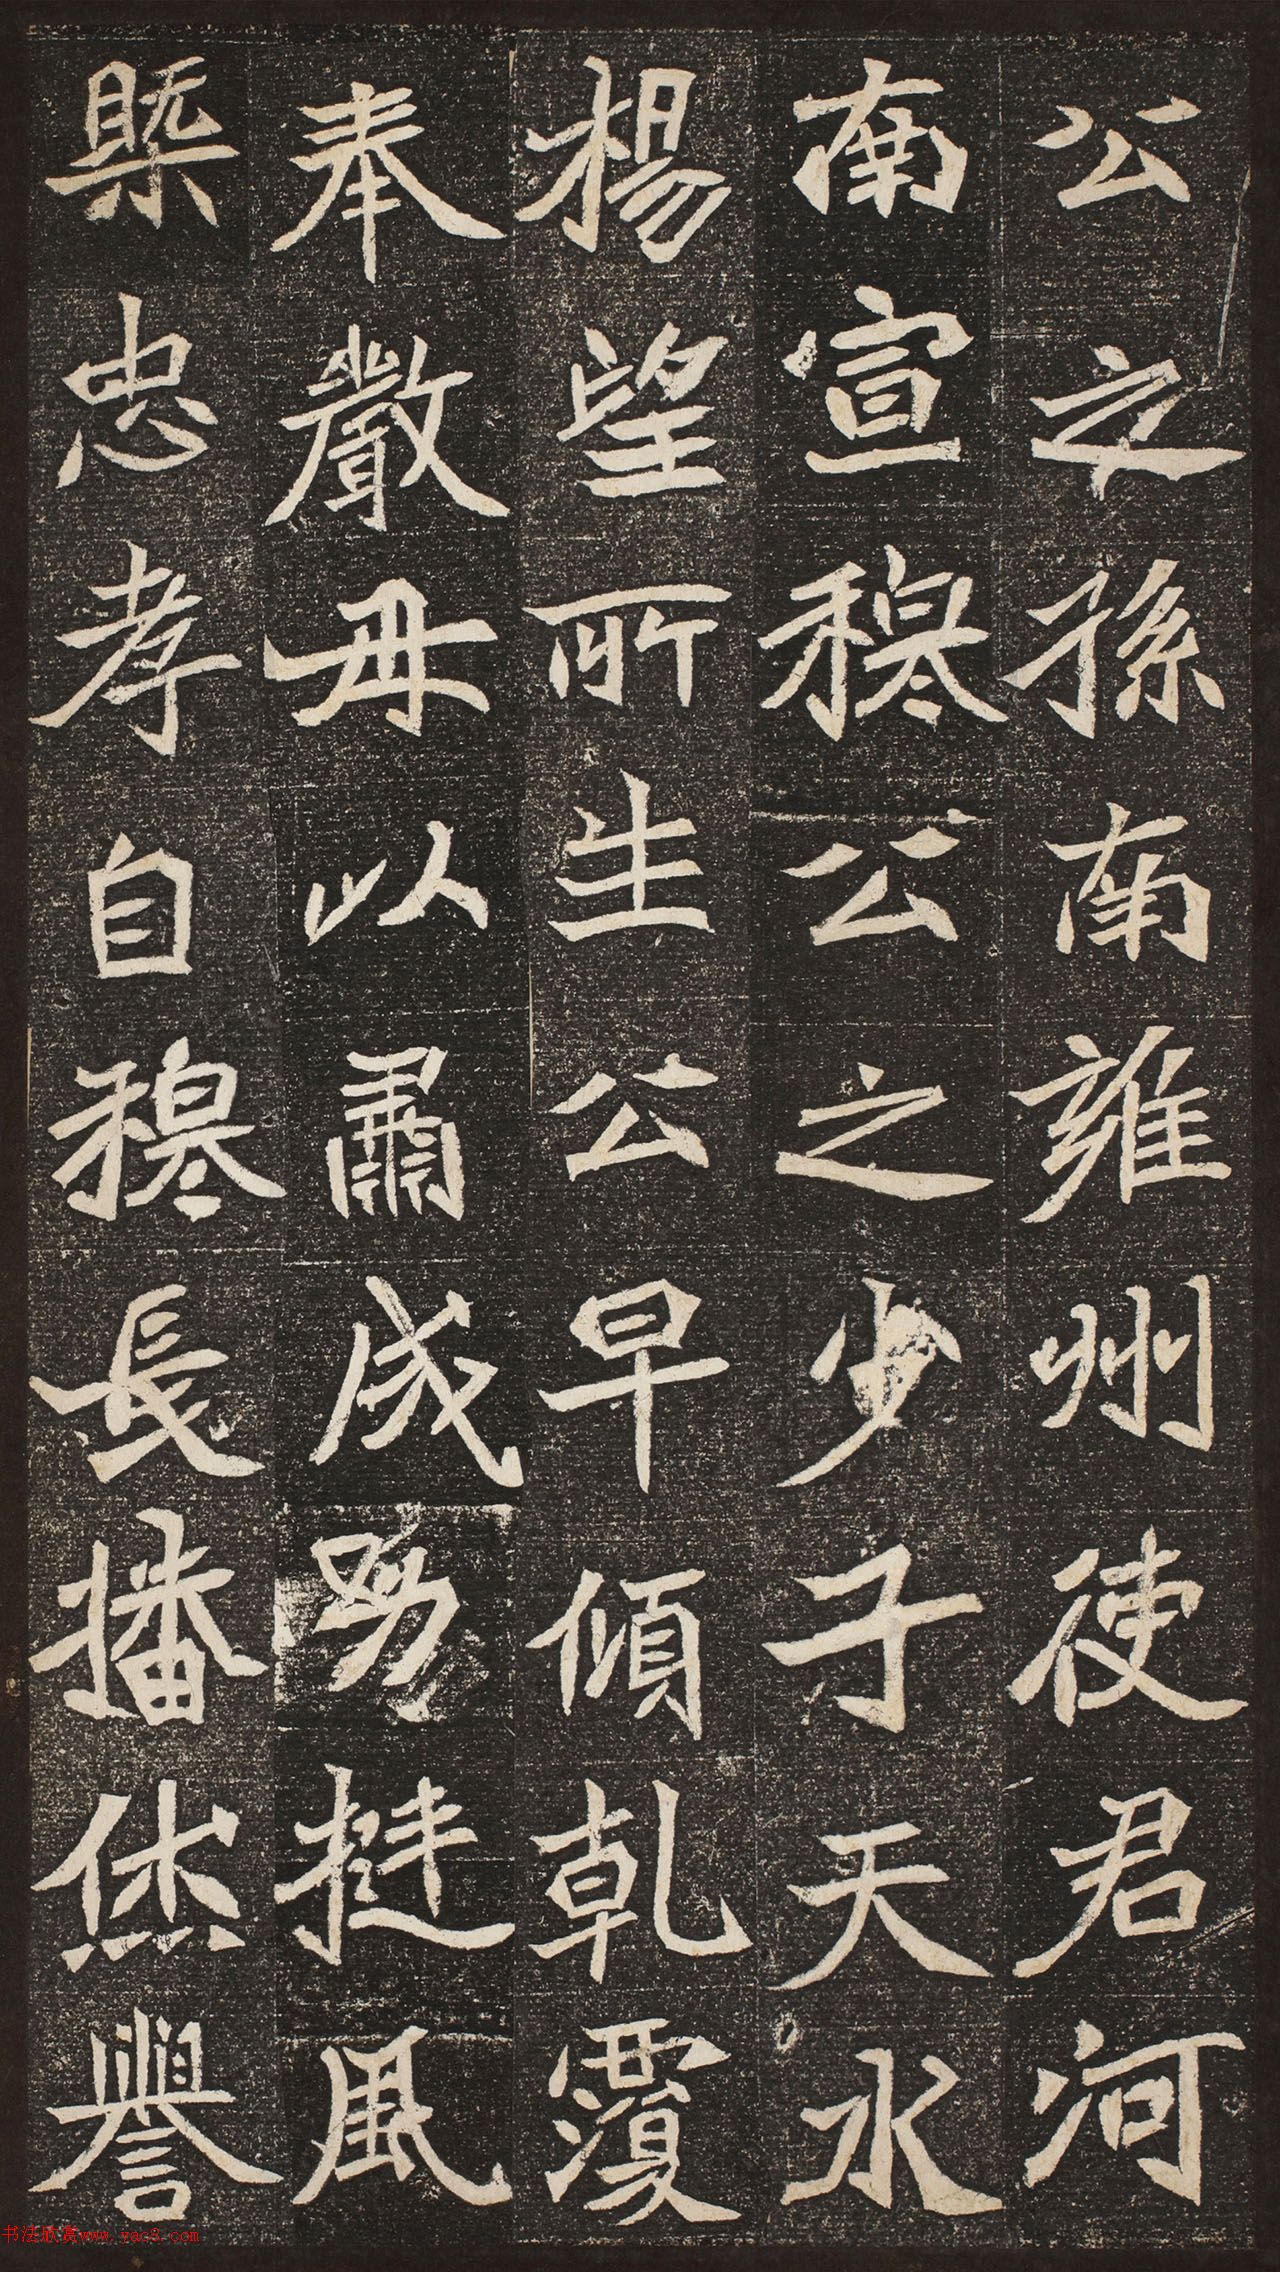 公之孫南雍州使君河
南宣穆公之少子天水
楊望所生公早傾乾覆
奉嚴母以肅成剪挺風
槩忠孝自穆長播休譽
书法欣赏www.yac8.com